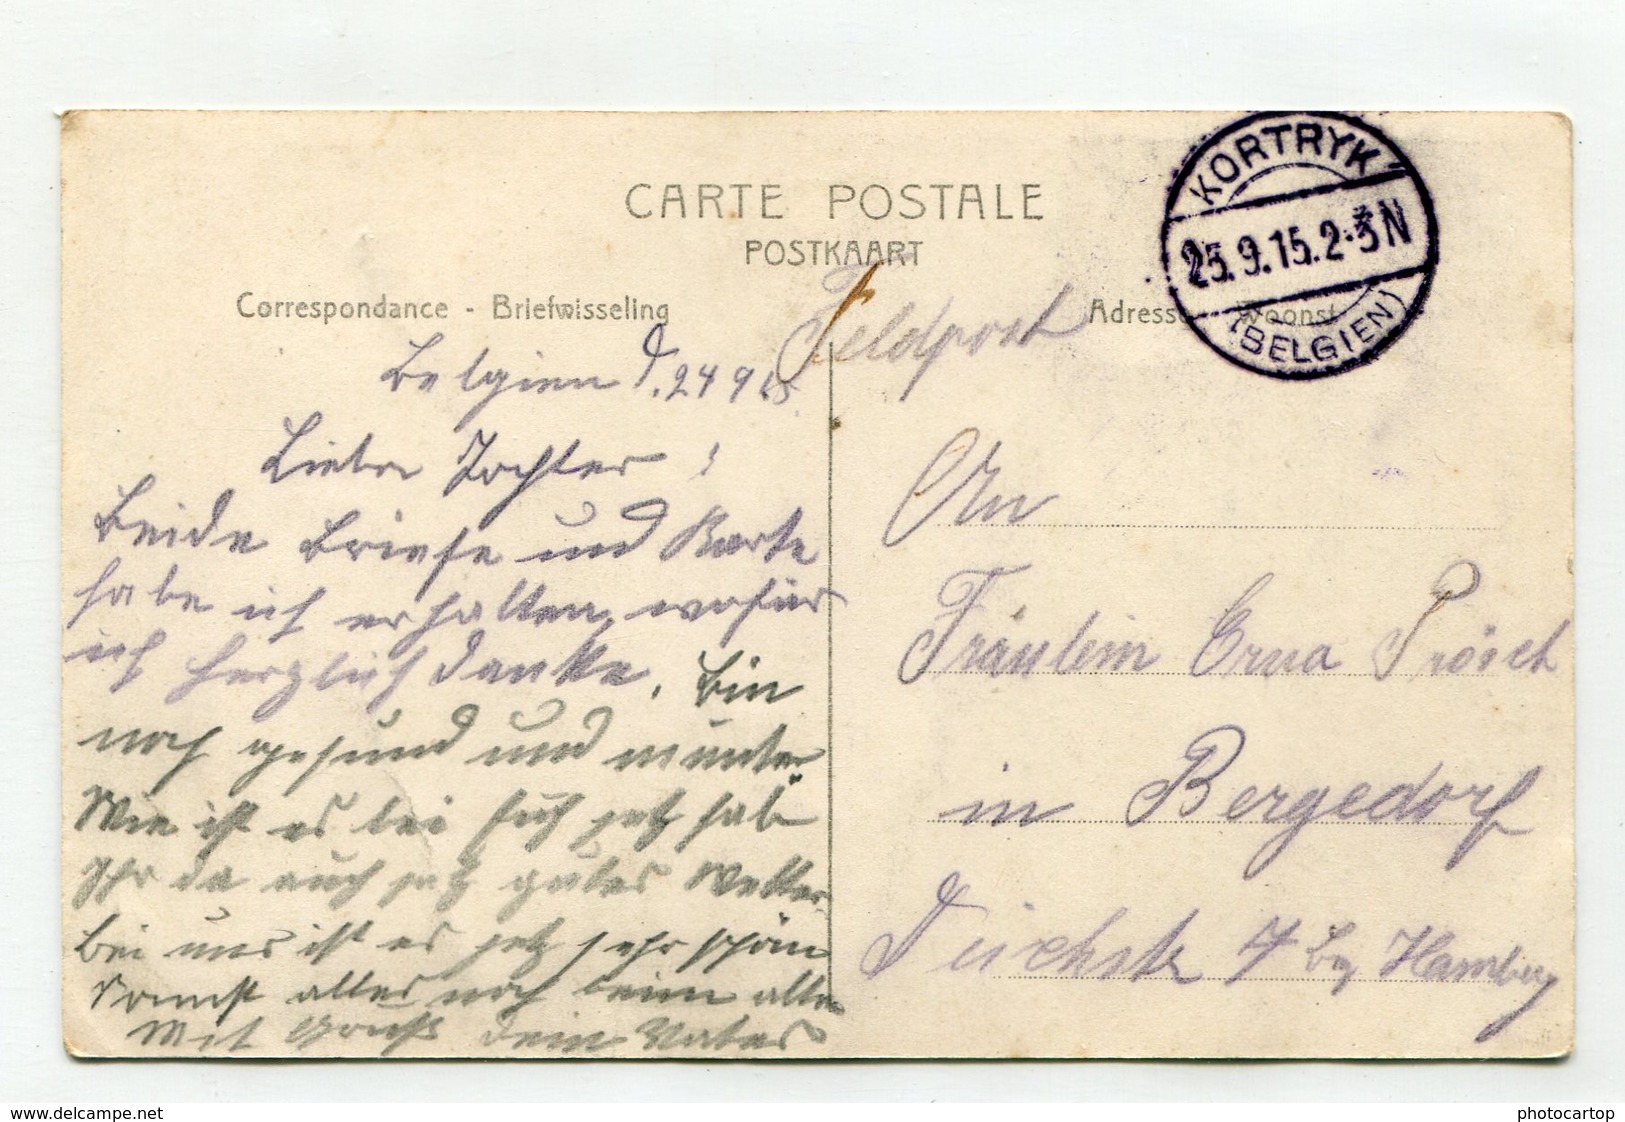 CARTE POSTALE
POSTKAART
Correspondance - Briefwisseling
Adresse Woonst
KORTRYK
25.9.15.2-3N
(BELGIEN)
Feldpost
Belgien d. 24 9 15.
Liebe Tochter!
Beide Briefe und Karte
habe ich erhalten, wofür
ich herzlich danke. Bin
noch gesund und munter
Wie ist es bei Euch jetz hab
Ihr da auch jetz gutes Wetter
Bei uns ist es jetz sehr schön
Sonnst alles noch beim alten
Mit Gruß dein Vater
An
Fräulein Erna
in Bergedorf
Deichstr 7 by Hamburg
www.delcampe.net
photocartop